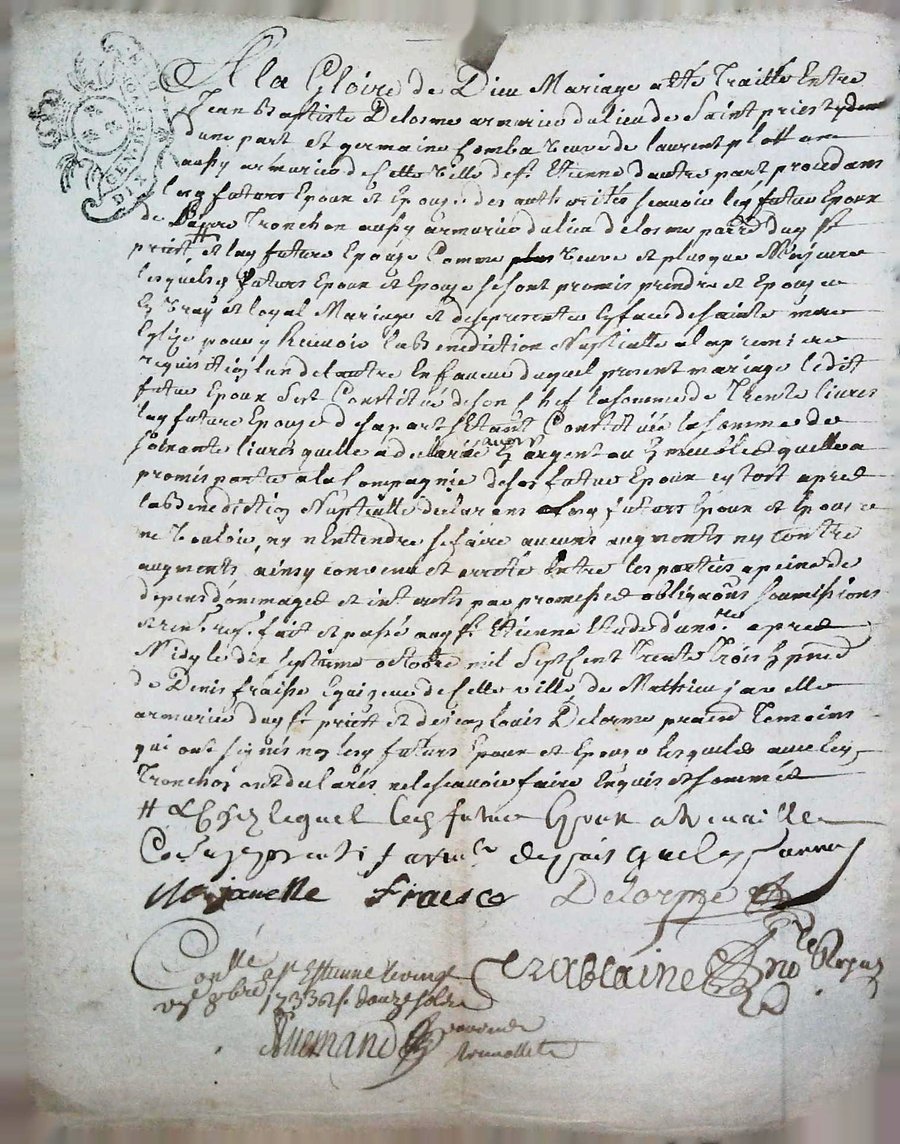 GENERALITE
DIX
A la Gloire de Dieu Mariage a été Traitté Entre
Jean Baptiste Delorme armurier du lieu de Saint priest
d'une part Et germaine Comba veuve de laurent plotton
aussy armurier de cette ville de st Etienne d'autre part procedans
lesd futurs Epoux et Epouze des authorités scavoir led futur Epoux
de Tronchon aussy armurier du lieu
priest et lad future Epouze Comme veuve et plusque Majeure
lesquels futurs Epoux et Epouze se sont promis prendre et Epouzer
En vray et loyal Mariage et se presenter En face de sainte mere
Eglize pour y Recevoir la Benediction Nuptialle a la premiere
requisition l'un de l'autre En faveur duquel present mariage ledit
futur Epoux s'est Constitué de son Chef la somme de Trente livres
lad future Epouze de sa part s'Etant Constituée la somme de
soixante livres quelle a declaré avoir En argent ou En meubles quelle a
promis porter a la Compagnie de son futur Epoux tost apres
la Benediction Nuptialle declarans lesd futurs Epoux et Epouze
ne vouloir ny n'Entendre se faire aucuns augments ny contre
augments ainsy convenu et arreté Entre les parties a peine de
depens dommages et interests par promesses obligaons soumissions
et fait et passé aud st Etienne Etude d'un nores apres
Midy le dix septieme octobre mil Sept Cent Trente Trois En pnce
de Denis fraisse de cette ville de Mathieu javelle
armurier dud st priest et de Louis Delorme temoins
qui ont signés non lesd futurs Epoux et Epouze lesquels avec led
Tronchon ont declarés ne le scavoir faire Enquis et sommés
# Chez lequel led futur Epoux a travaillé
depuis quelques années
M javelle Fraesse Delorme
Teyxblaine nore Royal
Conllé a st Ettienne le vingt
8bre 1733 douze sols
Allemand